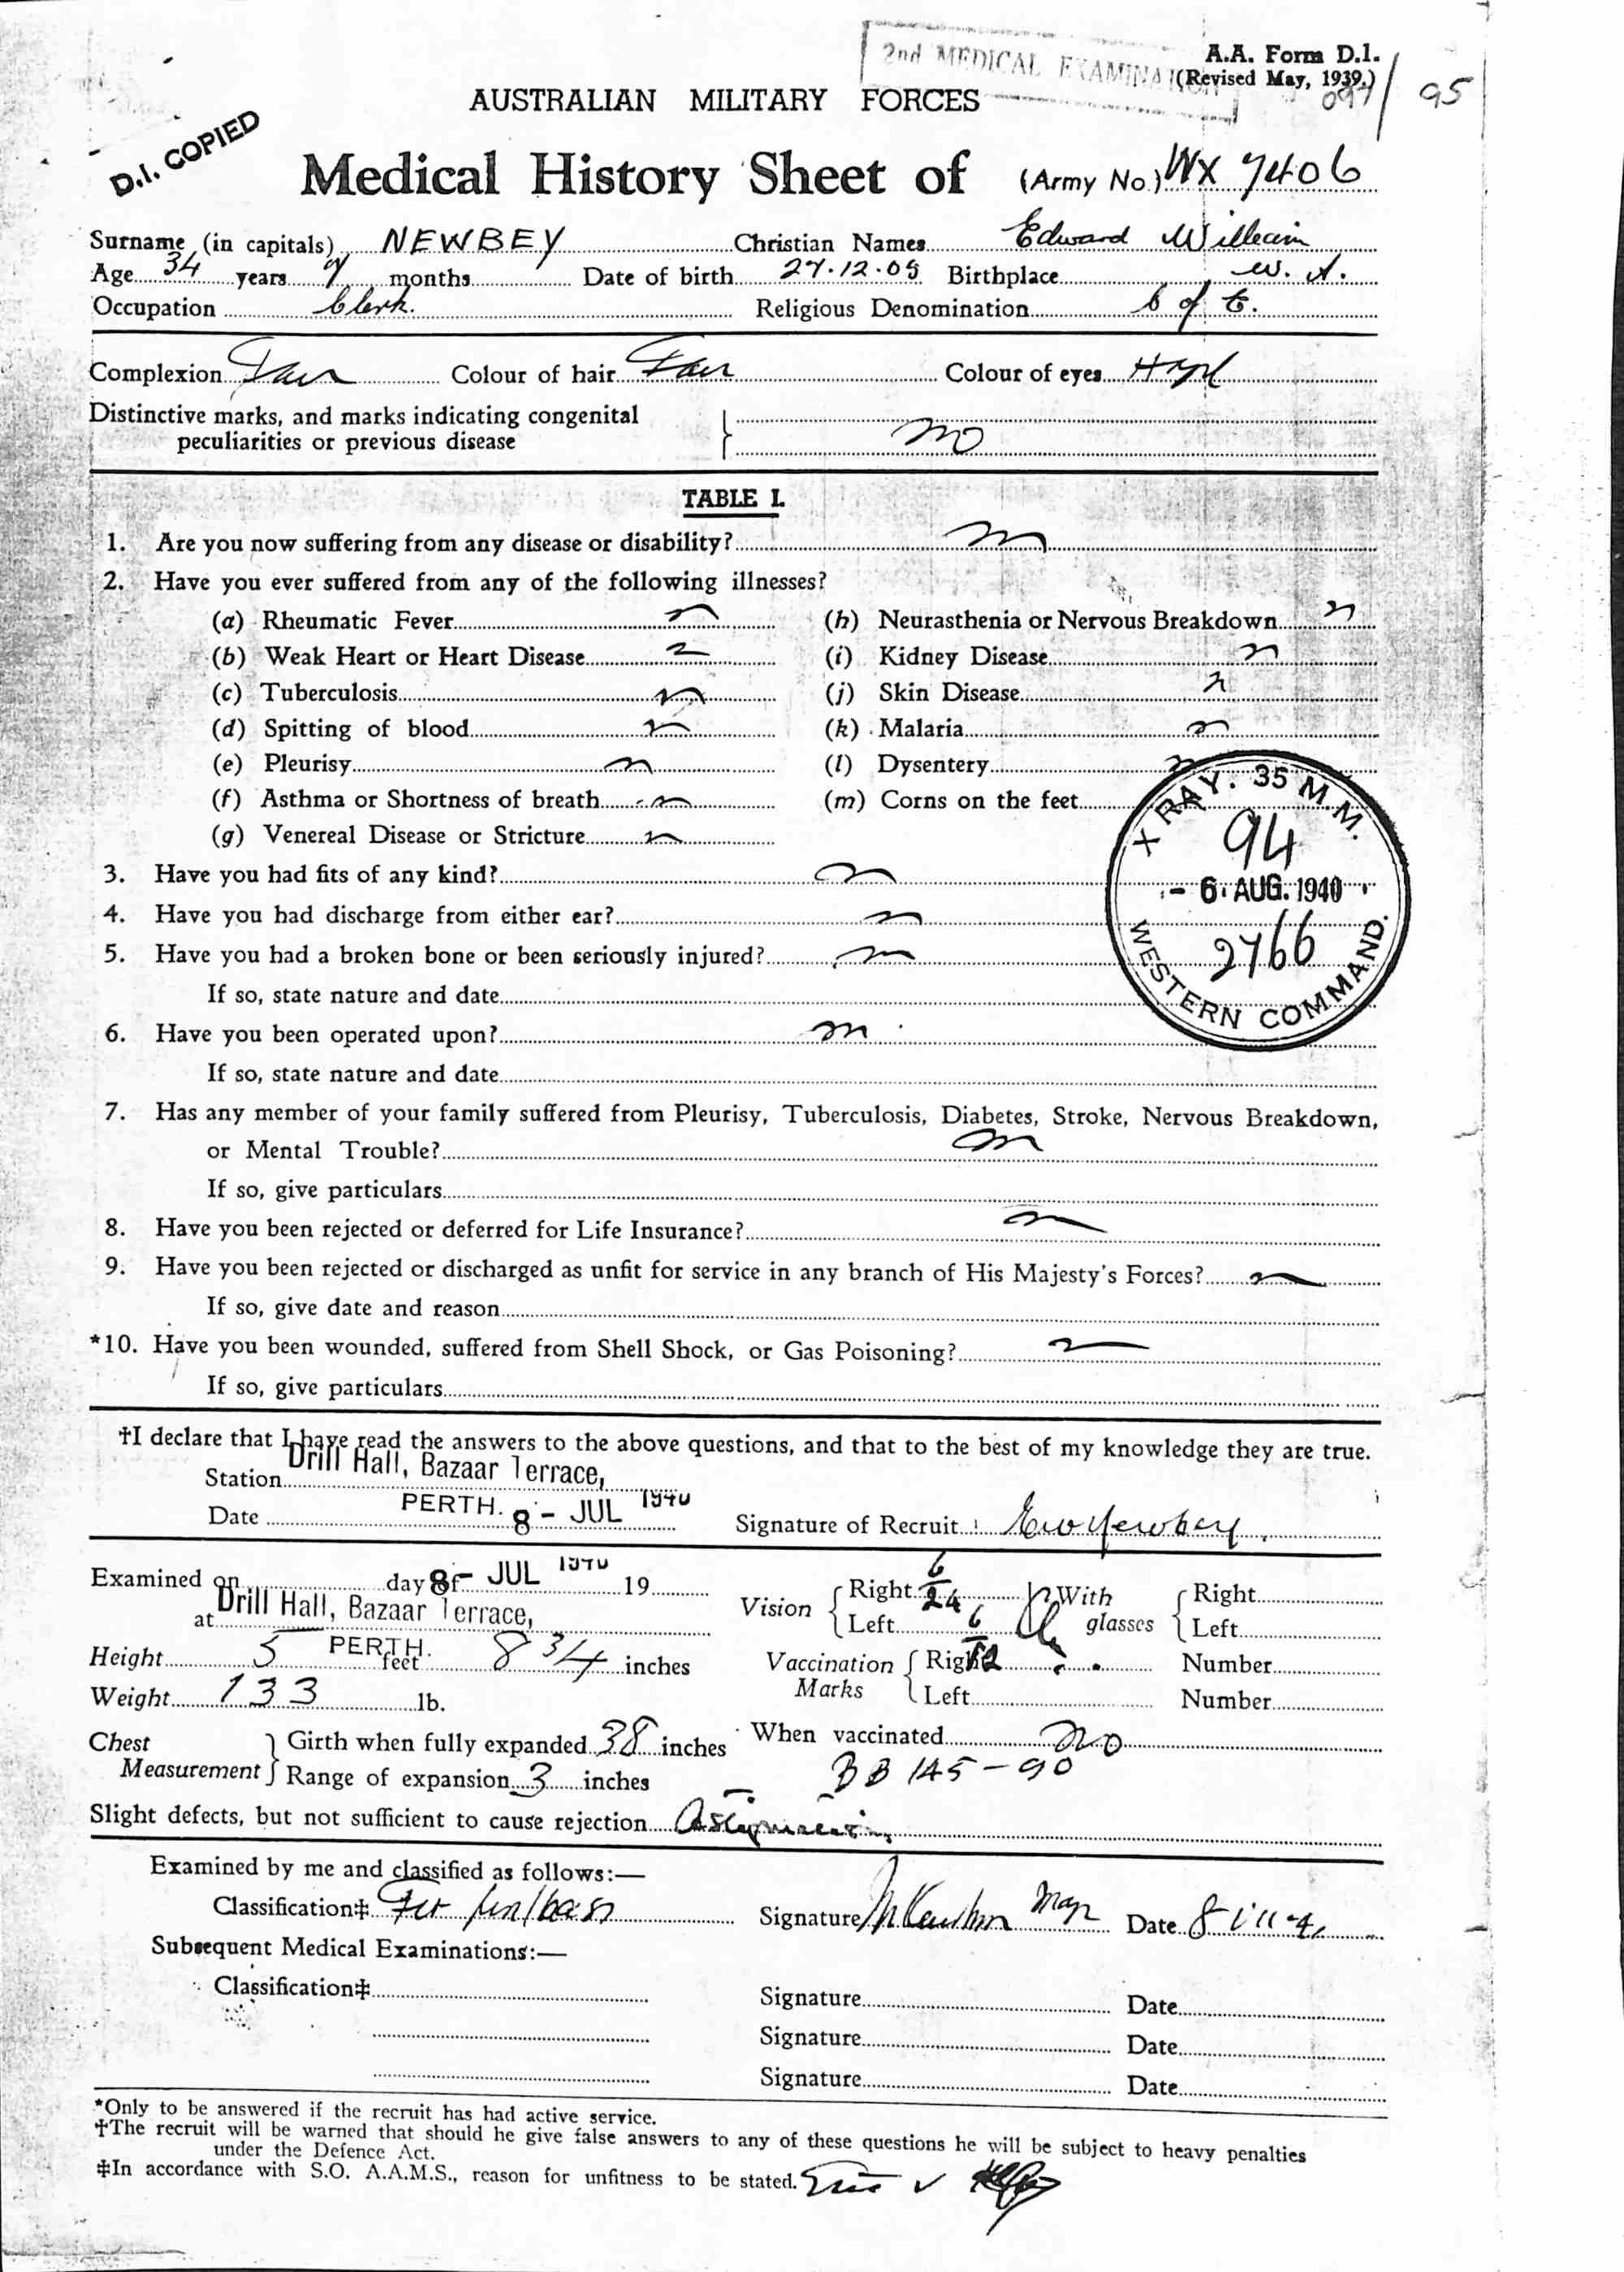 2nd MEDICAL EXAMINATION
A.A. Form D.1.
(Revised May, 1939.)
95
AUSTRALIAN MILITARY FORCES
D.I. COPIED
Medical History Sheet of (Army No.) WX 7406
Surname (in capitals) NEWBEY Christian Names Edward William
Age 34 years 7 months Date of birth 27.12.05 Birthplace W. A.
Occupation Clerk. Religious Denomination C of E.
Complexion Fair Colour of hair Fair Colour of eyes Hazel
Distinctive marks, and marks indicating congenital
peculiarities or previous disease } no
TABLE I.
1. Are you now suffering from any disease or disability? n
2. Have you ever suffered from any of the following illnesses?
(a) Rheumatic Fever n (h) Neurasthenia or Nervous Breakdown n
(b) Weak Heart or Heart Disease n (i) Kidney Disease n
(c) Tuberculosis n (j) Skin Disease n
(d) Spitting of blood n (k) Malaria n
(e) Pleurisy n (l) Dysentery n
(f) Asthma or Shortness of breath n (m) Corns on the feet
(g) Venereal Disease or Stricture n
X RAY. 35 M.M.
94
- 6 AUG. 1940
2766
WESTERN COMMAND.
3. Have you had fits of any kind? n
4. Have you had discharge from either ear? n
5. Have you had a broken bone or been seriously injured? n
If so, state nature and date
6. Have you been operated upon? n
If so, state nature and date
7. Has any member of your family suffered from Pleurisy, Tuberculosis, Diabetes, Stroke, Nervous Breakdown,
or Mental Trouble? n
If so, give particulars
8. Have you been rejected or deferred for Life Insurance? n
9. Have you been rejected or discharged as unfit for service in any branch of His Majesty's Forces? n
If so, give date and reason
*10. Have you been wounded, suffered from Shell Shock, or Gas Poisoning? n
If so, give particulars
†I declare that I have read the answers to the above questions, and that to the best of my knowledge they are true.
Station Drill Hall, Bazaar Terrace,
PERTH.
Date 8 - JUL 1940 Signature of Recruit EW Newbey.
Examined on day of 8 - JUL 1940 19
at Drill Hall, Bazaar Terrace,
PERTH.
Vision { Right 6/24 With glasses { Right
Left 6/12 Left
Height 5 feet 8 3/4 inches Vaccination Marks { Right Number
Weight 133 lb. Left Number
Chest Measurement } Girth when fully expanded 38 inches When vaccinated no
Range of expansion 3 inches BB 145-90
Slight defects, but not sufficient to cause rejection Astigmatism
Examined by me and classified as follows:—
Classification‡ Fit Signature Date
Subsequent Medical Examinations:—
Classification‡ Signature Date
Signature Date
Signature Date
*Only to be answered if the recruit has had active service.
†The recruit will be warned that should he give false answers to any of these questions he will be subject to heavy penalties
under the Defence Act.
‡In accordance with S.O. A.A.M.S., reason for unfitness to be stated.